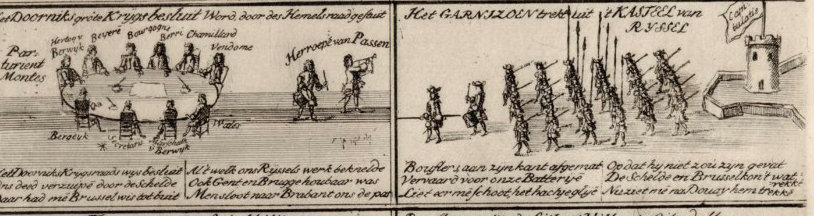 et Doorniks grote Krygsbesluit Word, door des Hemels raad gestuit
Par-
turient
Montes
Hertog v
Berwyk
Beyeré
Bourgogn
Berri
Chamillard
Vendome
Bergeyk
Secretaris
Marschalk
Berwyk
Wales
Herroepé van Passen
Het GARNIZOEN trekt uit 't KASTEEL van
RYSSEL
Capi
tulatie
et Doorniks Krygsraads wys besluit
ons deed verzuipé door de Schelde
aar had mé Brussel wis tot buit
Al 't welk ons Ryssels werk beknelde
Ook Gent en Brugge houbaar was
Men sloot naar Braband ons de pas
Bouflers, aan zyn kant afgemat
Vervaard voor onze Batteryé
Liet eer mé schoot, het hachje glyé
Op dat hy niet zou zyn gevat
De Schelde en Brussel kon't wat rekké
Nu ziet mé na Douay hem trekké